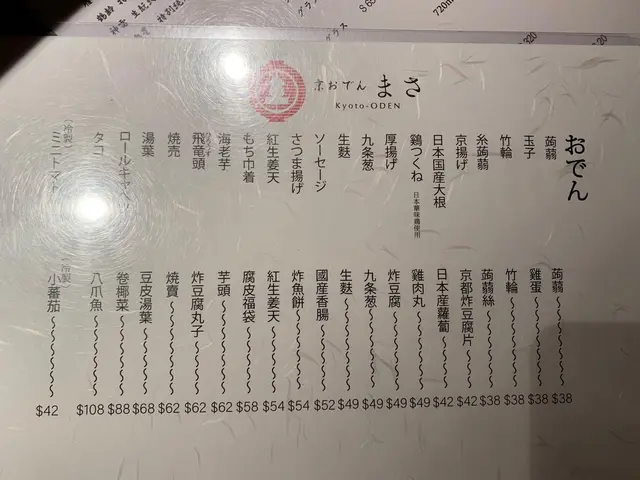 グラス
グラス
720m
京おでん まさ
Kyoto-ODEN
おでん
蒟蒻 蒟蒻 $38
玉子 雞蛋 $38
竹輪 竹輪 $38
糸蒟蒻 蒟蒻絲 $38
京揚げ 京都炸豆腐片 $42
日本国産大根 日本産蘿蔔 $42
鶏つくね 日本華味鶏使用 雞肉丸 $49
厚揚げ 炸豆腐 $49
九条葱 九条葱 $49
生麩 生麩 $49
ソーセージ 國産香腸 $52
さつま揚げ 炸魚餅 $54
紅生姜天 紅生姜天 $54
もち巾着 腐皮福袋 $58
海老芋 芋頭 $62
飛竜頭 炸豆腐丸子 $62
焼売 燒賣 $62
湯葉 豆皮湯葉 $68
ロールキャベツ 巻椰菜 $88
タコ 八爪魚 $108
（冷製）ミニトマト 冷製 小蕃茄 $42